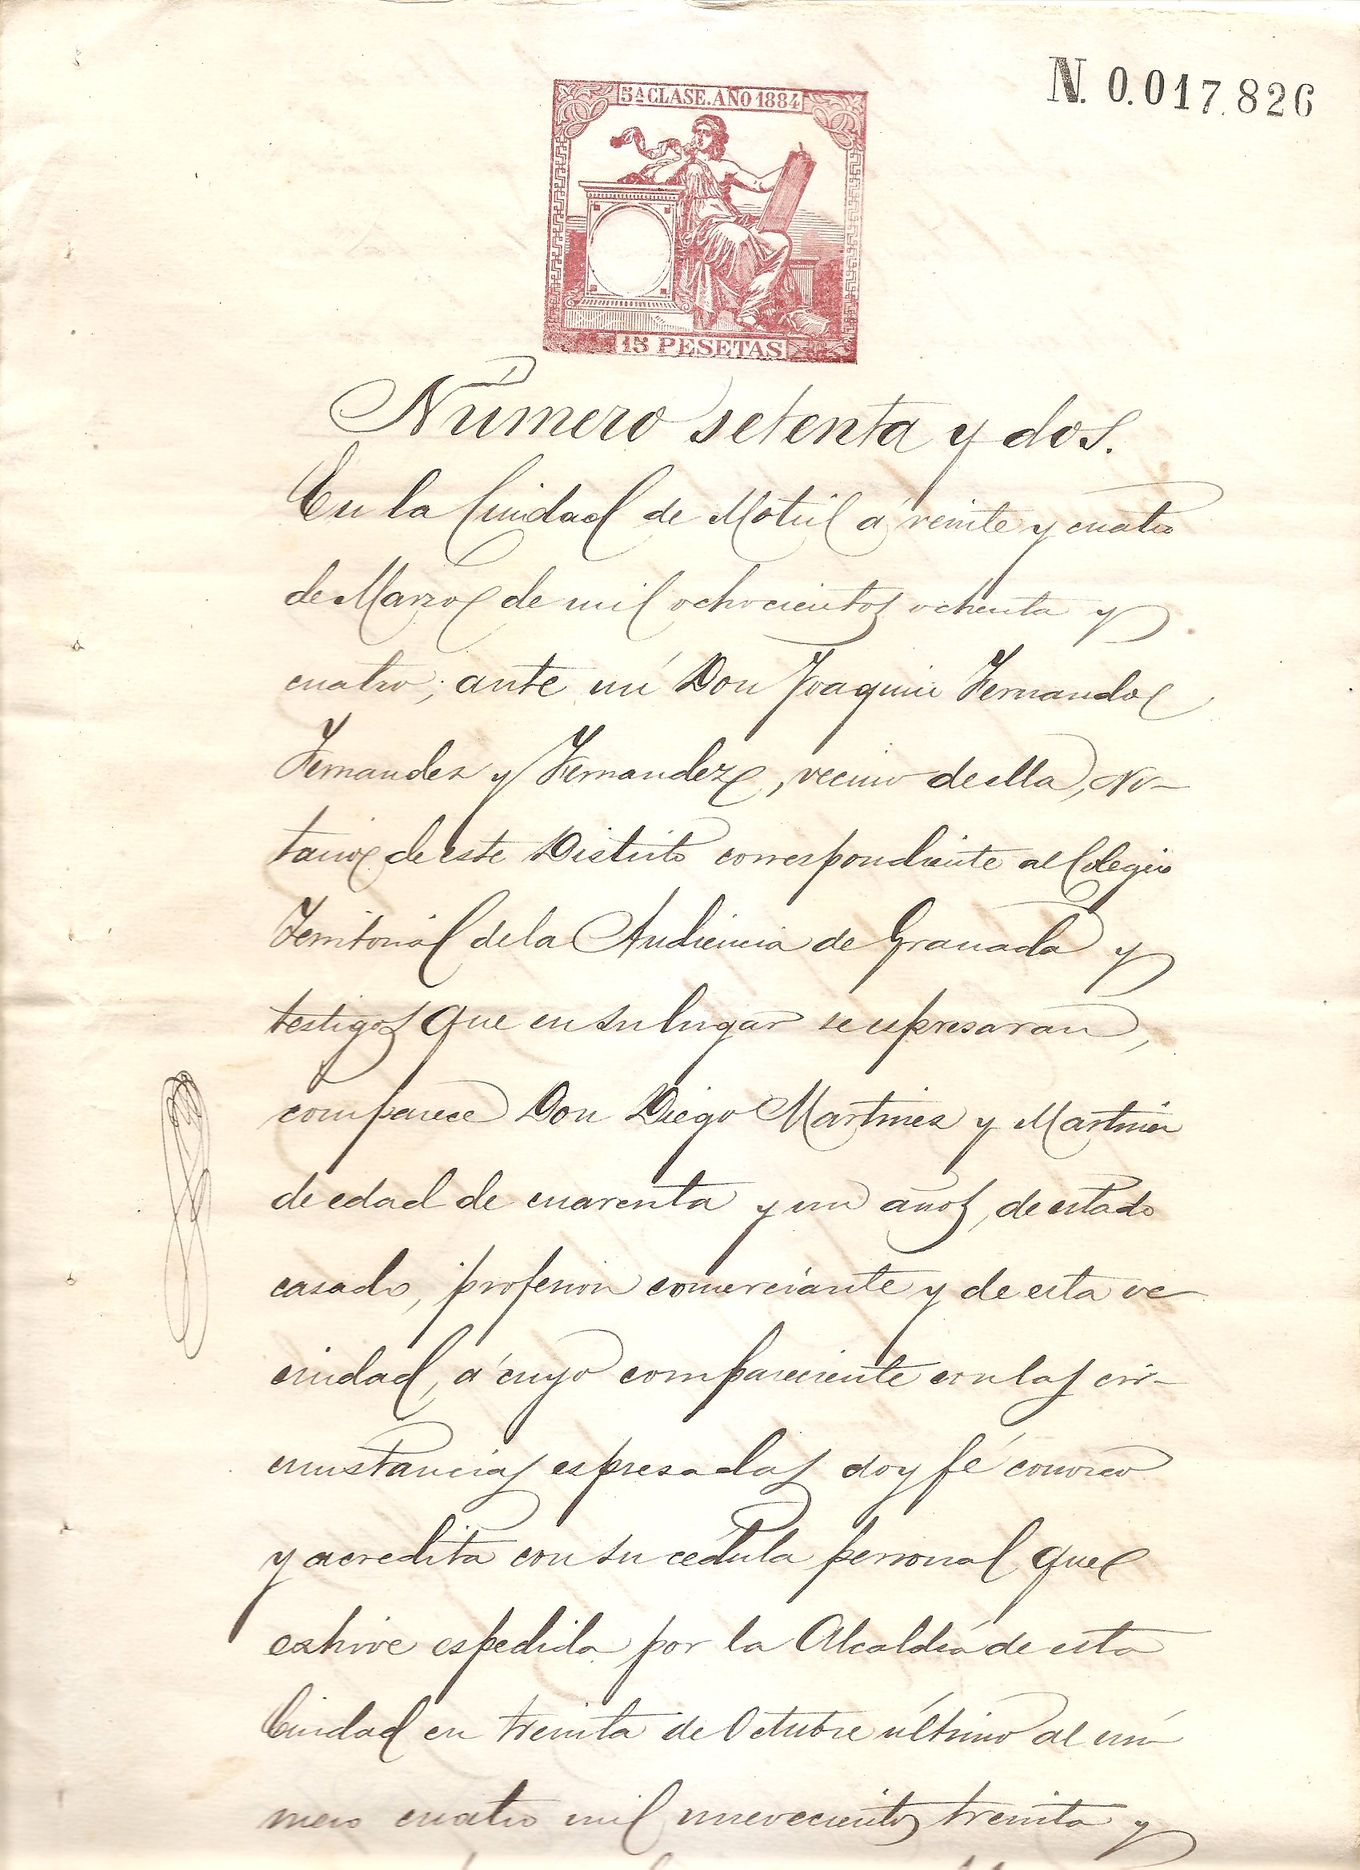 N. 0.017.826
5ª CLASE. AÑO 1884
15 PESETAS
Número setenta y dos.
En la Ciudad de Motril á veinte y cuatro
de Marzo de mil ochocientos ochenta y
cuatro; ante mí Don Joaquin Fernando
Fernandez y Fernandez, vecino de ella, No-
tario de este Distrito correspondiente al Colegio
Territorial de la Audiencia de Granada y
testigos que en su lugar se espresaran,
comparece Don Diego Martinez y Martinez
de edad de cuarenta y un años, de estado
casado, profesion comerciante y de esta ve-
cindad, á cuyo compareciente con las cir-
cunstancias espresadas doy fé conozco
y acredita con su cedula personal que
exhive espedida por la Alcaldía de esta
Ciudad en treinta de Octubre último al nú-
mero cuatro mil nuevecientos treinta y